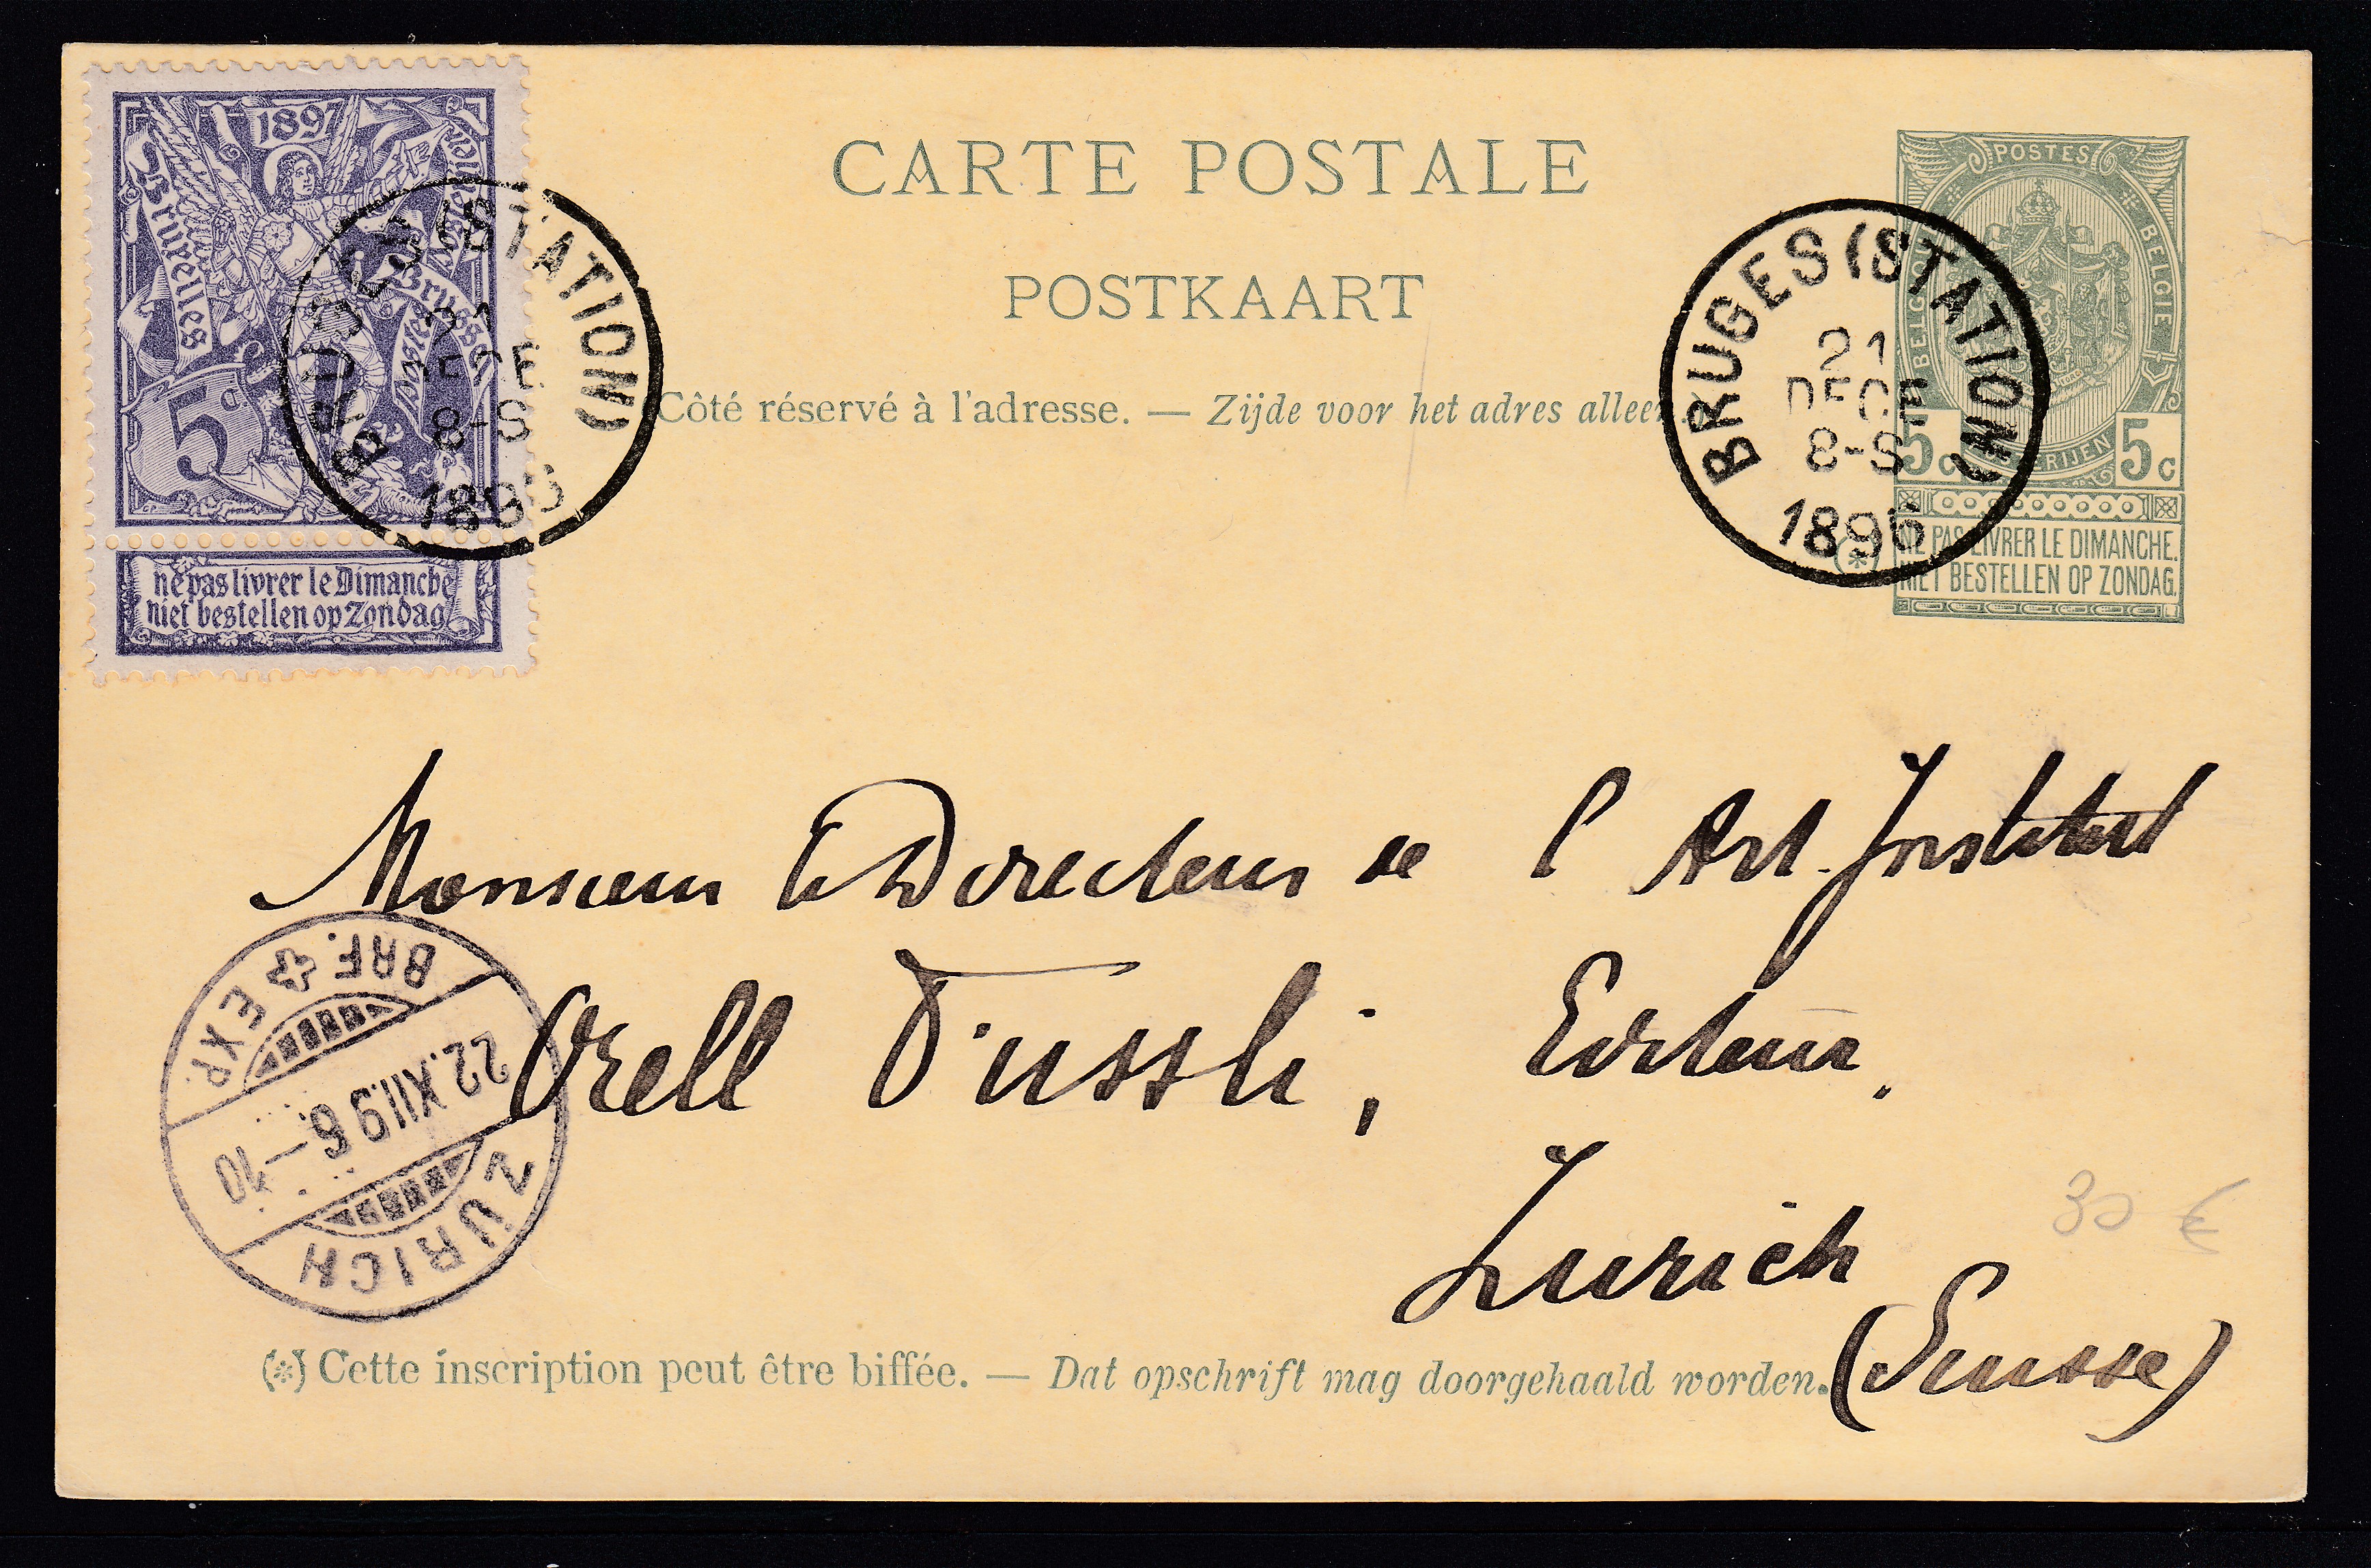 1897
Bruxelles
Brussel
Postes
5c
ne pas livrer le Dimanche
niet bestellen op Zondag
BRUGES (STATION)
21
DECE
8-S
1896
CARTE POSTALE
POSTKAART
Côté réservé à l'adresse. — Zijde voor het adres alleen
BRUGES (STATION)
21
DECE
8-S
1896
POSTES
BELGIE
5c 5c
(*) NE PAS LIVRER LE DIMANCHE.
NIET BESTELLEN OP ZONDAG.
Monsieur le Directeur de l'Art. Institut
Orell Füssli,
Editeur.
Zurich
(Suisse)
30 €
ZÜRICH
22.XII.96.–10
BRF. EXP.
(*) Cette inscription peut être biffée. — Dat opschrift mag doorgehaald worden.